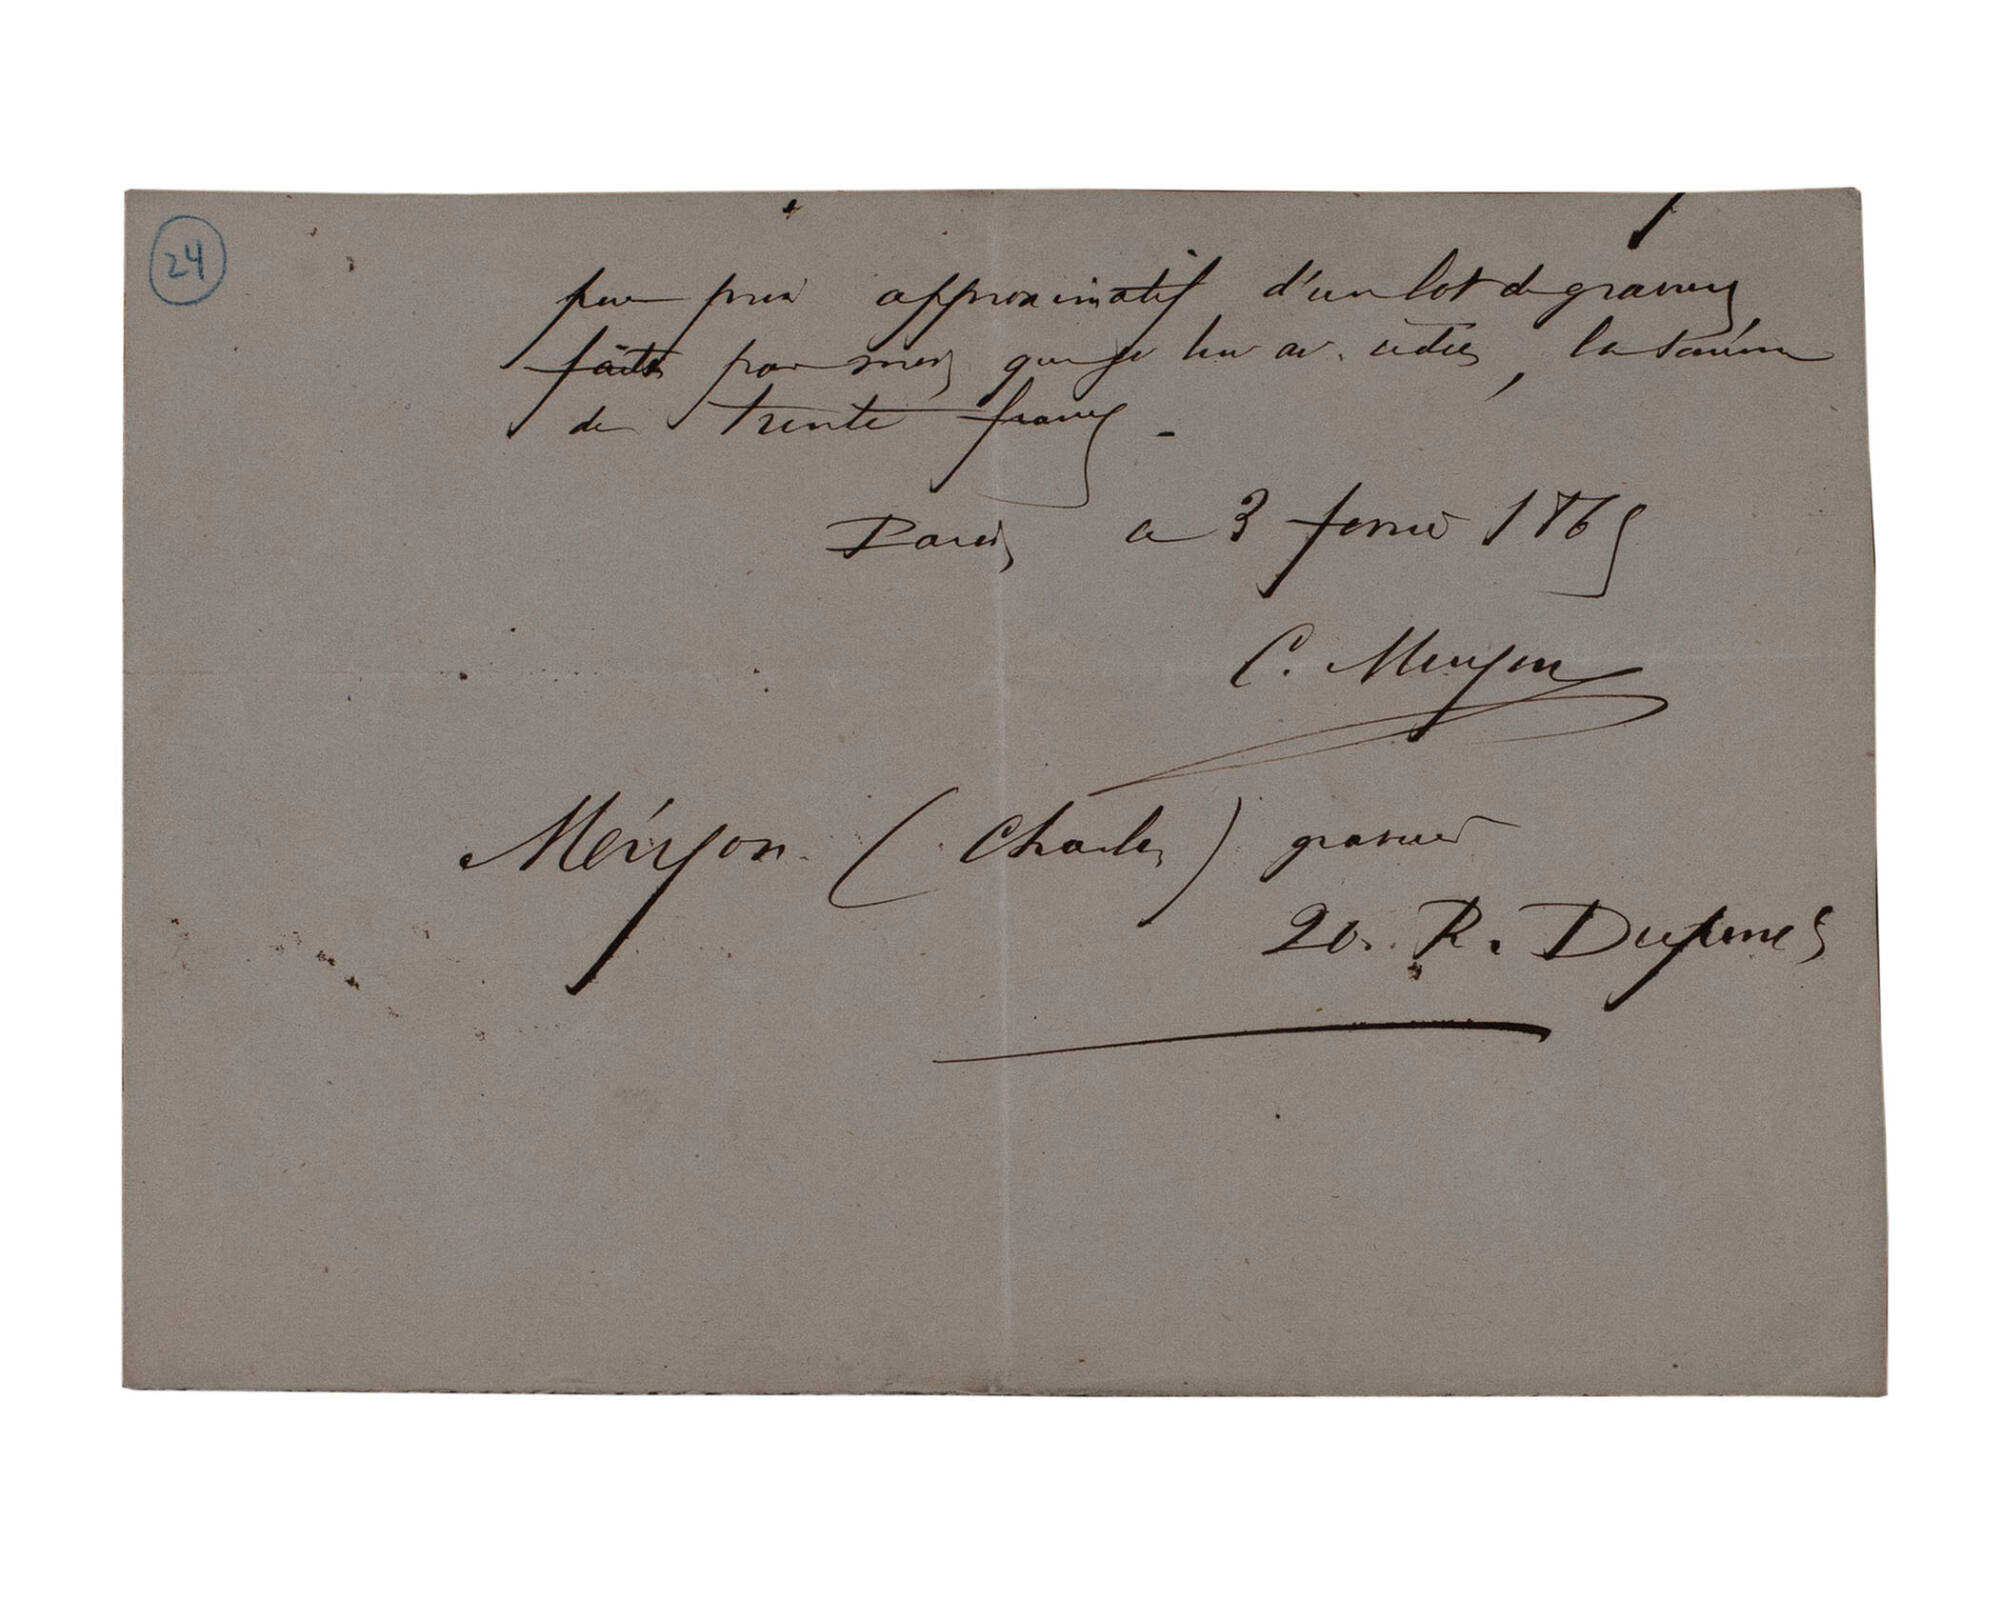 24
pour prix approximatif d'un lot de gravures
faites par moi, que je lui ai cédées, la somme
de trente francs -
Paris ce 3 février 1865
C. Meryon
Méryon (Charles) graveur
20. R. Duperré